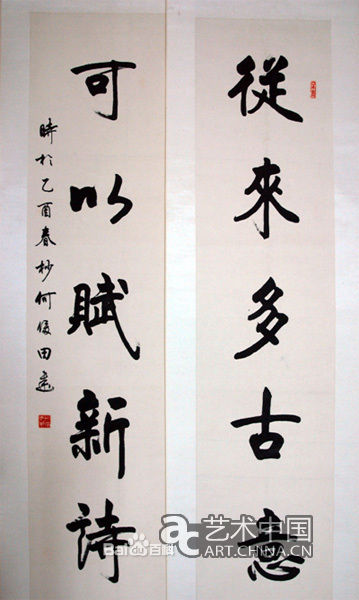 從來多古意
可以賦新詩
時於乙酉春杪何俊田
Bai百科
艺术中国
ART.CHINA.CN